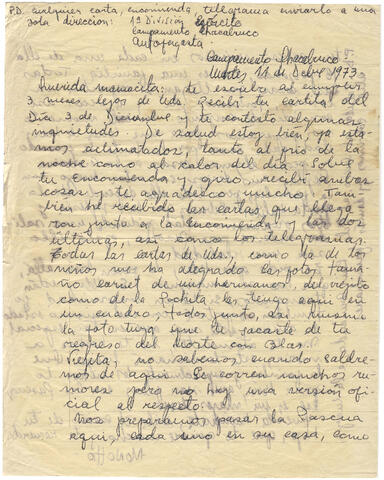 P.D. cualquier carta, encomienda, telegrama enviarlo a una
sola direccion: 1ª División Ejército
Campamento Chacabuco
Antofagasta.
Campamento Chacabuco
Martes, 11 de Dcbre 1973
Querida mamacita: te escribo al cumplir
3 meses lejos de Uds. Recibí tu cartita del
Día 3 de Diciembre y te contesto algunas
inquietudes. De salud estoy bien, ya esta-
mos aclimatados, tanto al frío de la
noche como al calor del día. Sobre
tu Encomienda y giro, recibí ambas
cosas y te agradesco mucho. Tam
bien he recibido las cartas que llega
ron junto a la Encomienda y las dos
últimas, así como los telegramas.
Todas las cartas de Uds., como la de los
niños me ha alegrado, las fotos tama-
ño carnet de mis hermanos, del viejito
como de la Pochita las tengo aquí en
un cuadro, todos junto, así mismo
la foto tuya que te sacaste de tu
regreso del Norte con Blas.
Viejita, no sabemos cuando saldre-
mos de aquí. Se corren muchos ru
mores pero no hay una versión ofi
cial al respecto.
Nos preparamos pasar la Pascua
aquí, cada uno en su casa, como